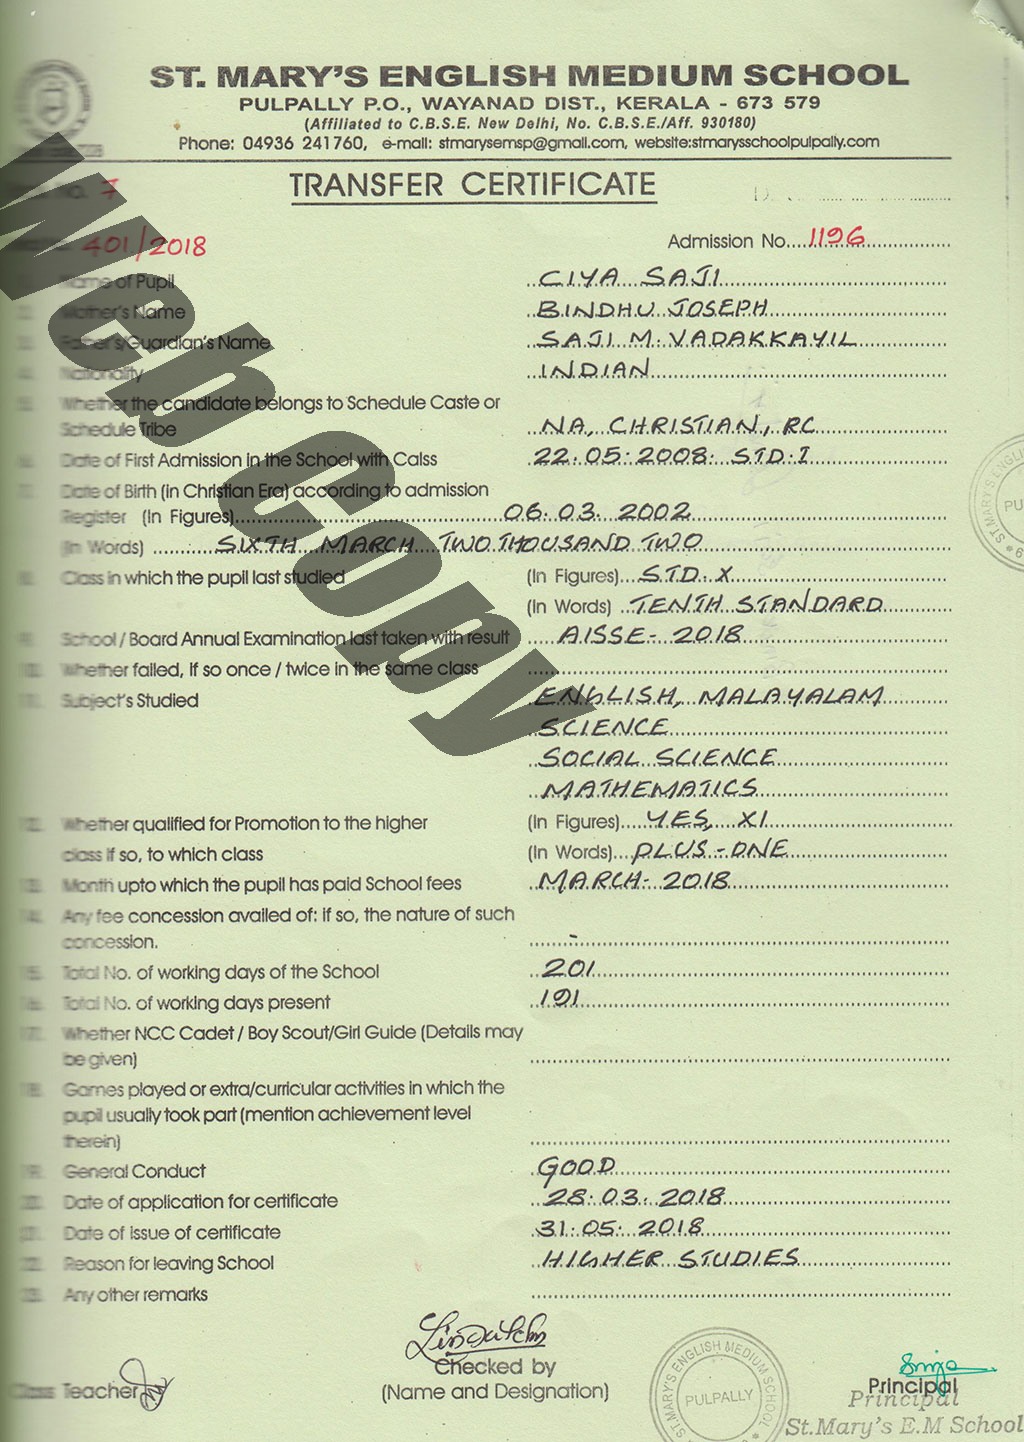 ST. MARY'S ENGLISH MEDIUM SCHOOL
PULPALLY P.O., WAYANAD DIST., KERALA - 673 579
(Affiliated to C.B.S.E. New Delhi, No. C.B.S.E./Aff. 930180)
Phone: 04936 241760, e-mail: stmarysemsp@gmail.com, website:stmarysschoolpulpally.com
No. 7
TRANSFER CERTIFICATE
401/2018
Admission No. 1196
Name of Pupil CIYA SAJI
Mother's Name BINDHU JOSEPH
Father's/Guardian's Name SAJI M. VADAKKAYIL
Nationality INDIAN
Whether the candidate belongs to Schedule Caste or
Schedule Tribe NA, CHRISTIAN, RC
Date of First Admission in the School with Calss 22.05.2008. STD.I
Date of Birth (in Christian Era) according to admission
Register (In Figures) 06.03.2002
(In Words) SIXTH MARCH TWO THOUSAND TWO
Class in which the pupil last studied (In Figures) STD.X
(In Words) TENTH STANDARD
School / Board Annual Examination last taken with result AISSE-2018
10. Whether failed, if so once / twice in the same class
11. Subject's Studied ENGLISH, MALAYALAM
SCIENCE
SOCIAL SCIENCE
MATHEMATICS
12. Whether qualified for Promotion to the higher (In Figures) YES, XI
class if so, to which class (In Words) PLUS-ONE
13. Month upto which the pupil has paid School fees MARCH-2018
14. Any fee concession availed of: if so, the nature of such
concession. -
15. Total No. of working days of the School 201
16. Total No. of working days present 191
17. Whether NCC Cadet / Boy Scout/Girl Guide (Details may
be given)
18. Games played or extra/curricular activities in which the
pupil usually took part (mention achievement level
therein)
19. General Conduct GOOD
20. Date of application for certificate 28.03.2018
21. Date of issue of certificate 31.05.2018
22. Reason for leaving School HIGHER STUDIES
23. Any other remarks
Web Copy
Class Teacher
Checked by
(Name and Designation)
ST.MARY'S ENGLISH MEDIUM SCHOOL
PULPALLY
Principal
Principal
St.Mary's E.M School